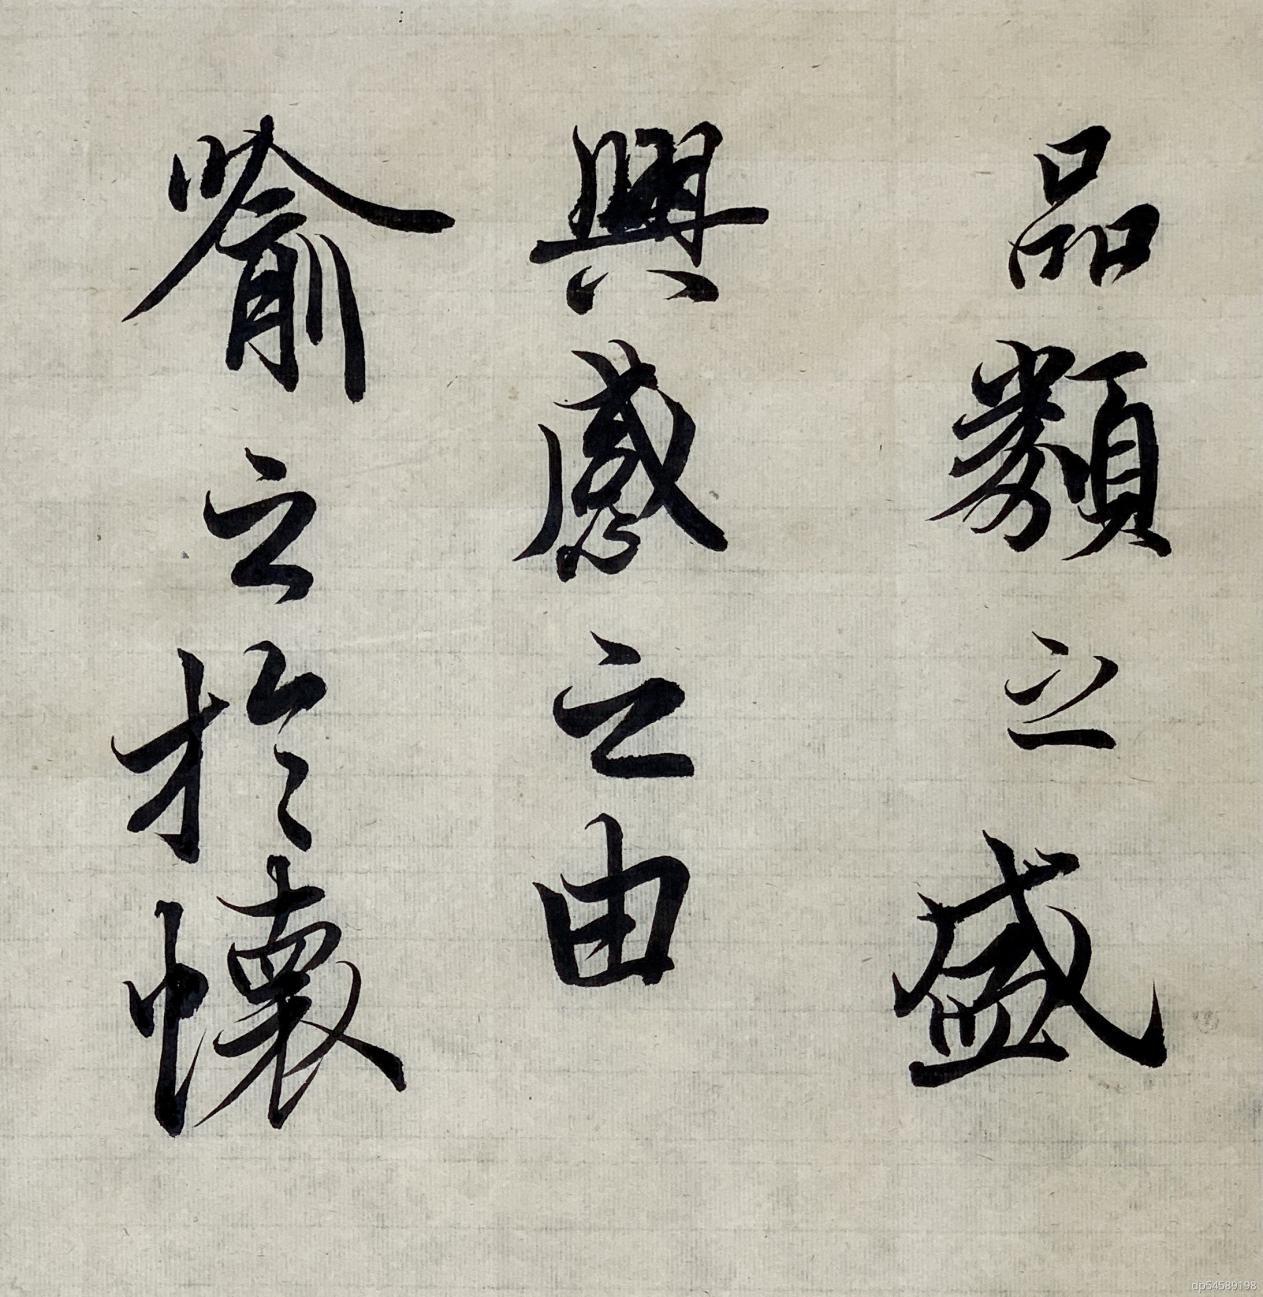 品類之盛
興感之由
喻之於懷
dp54589198